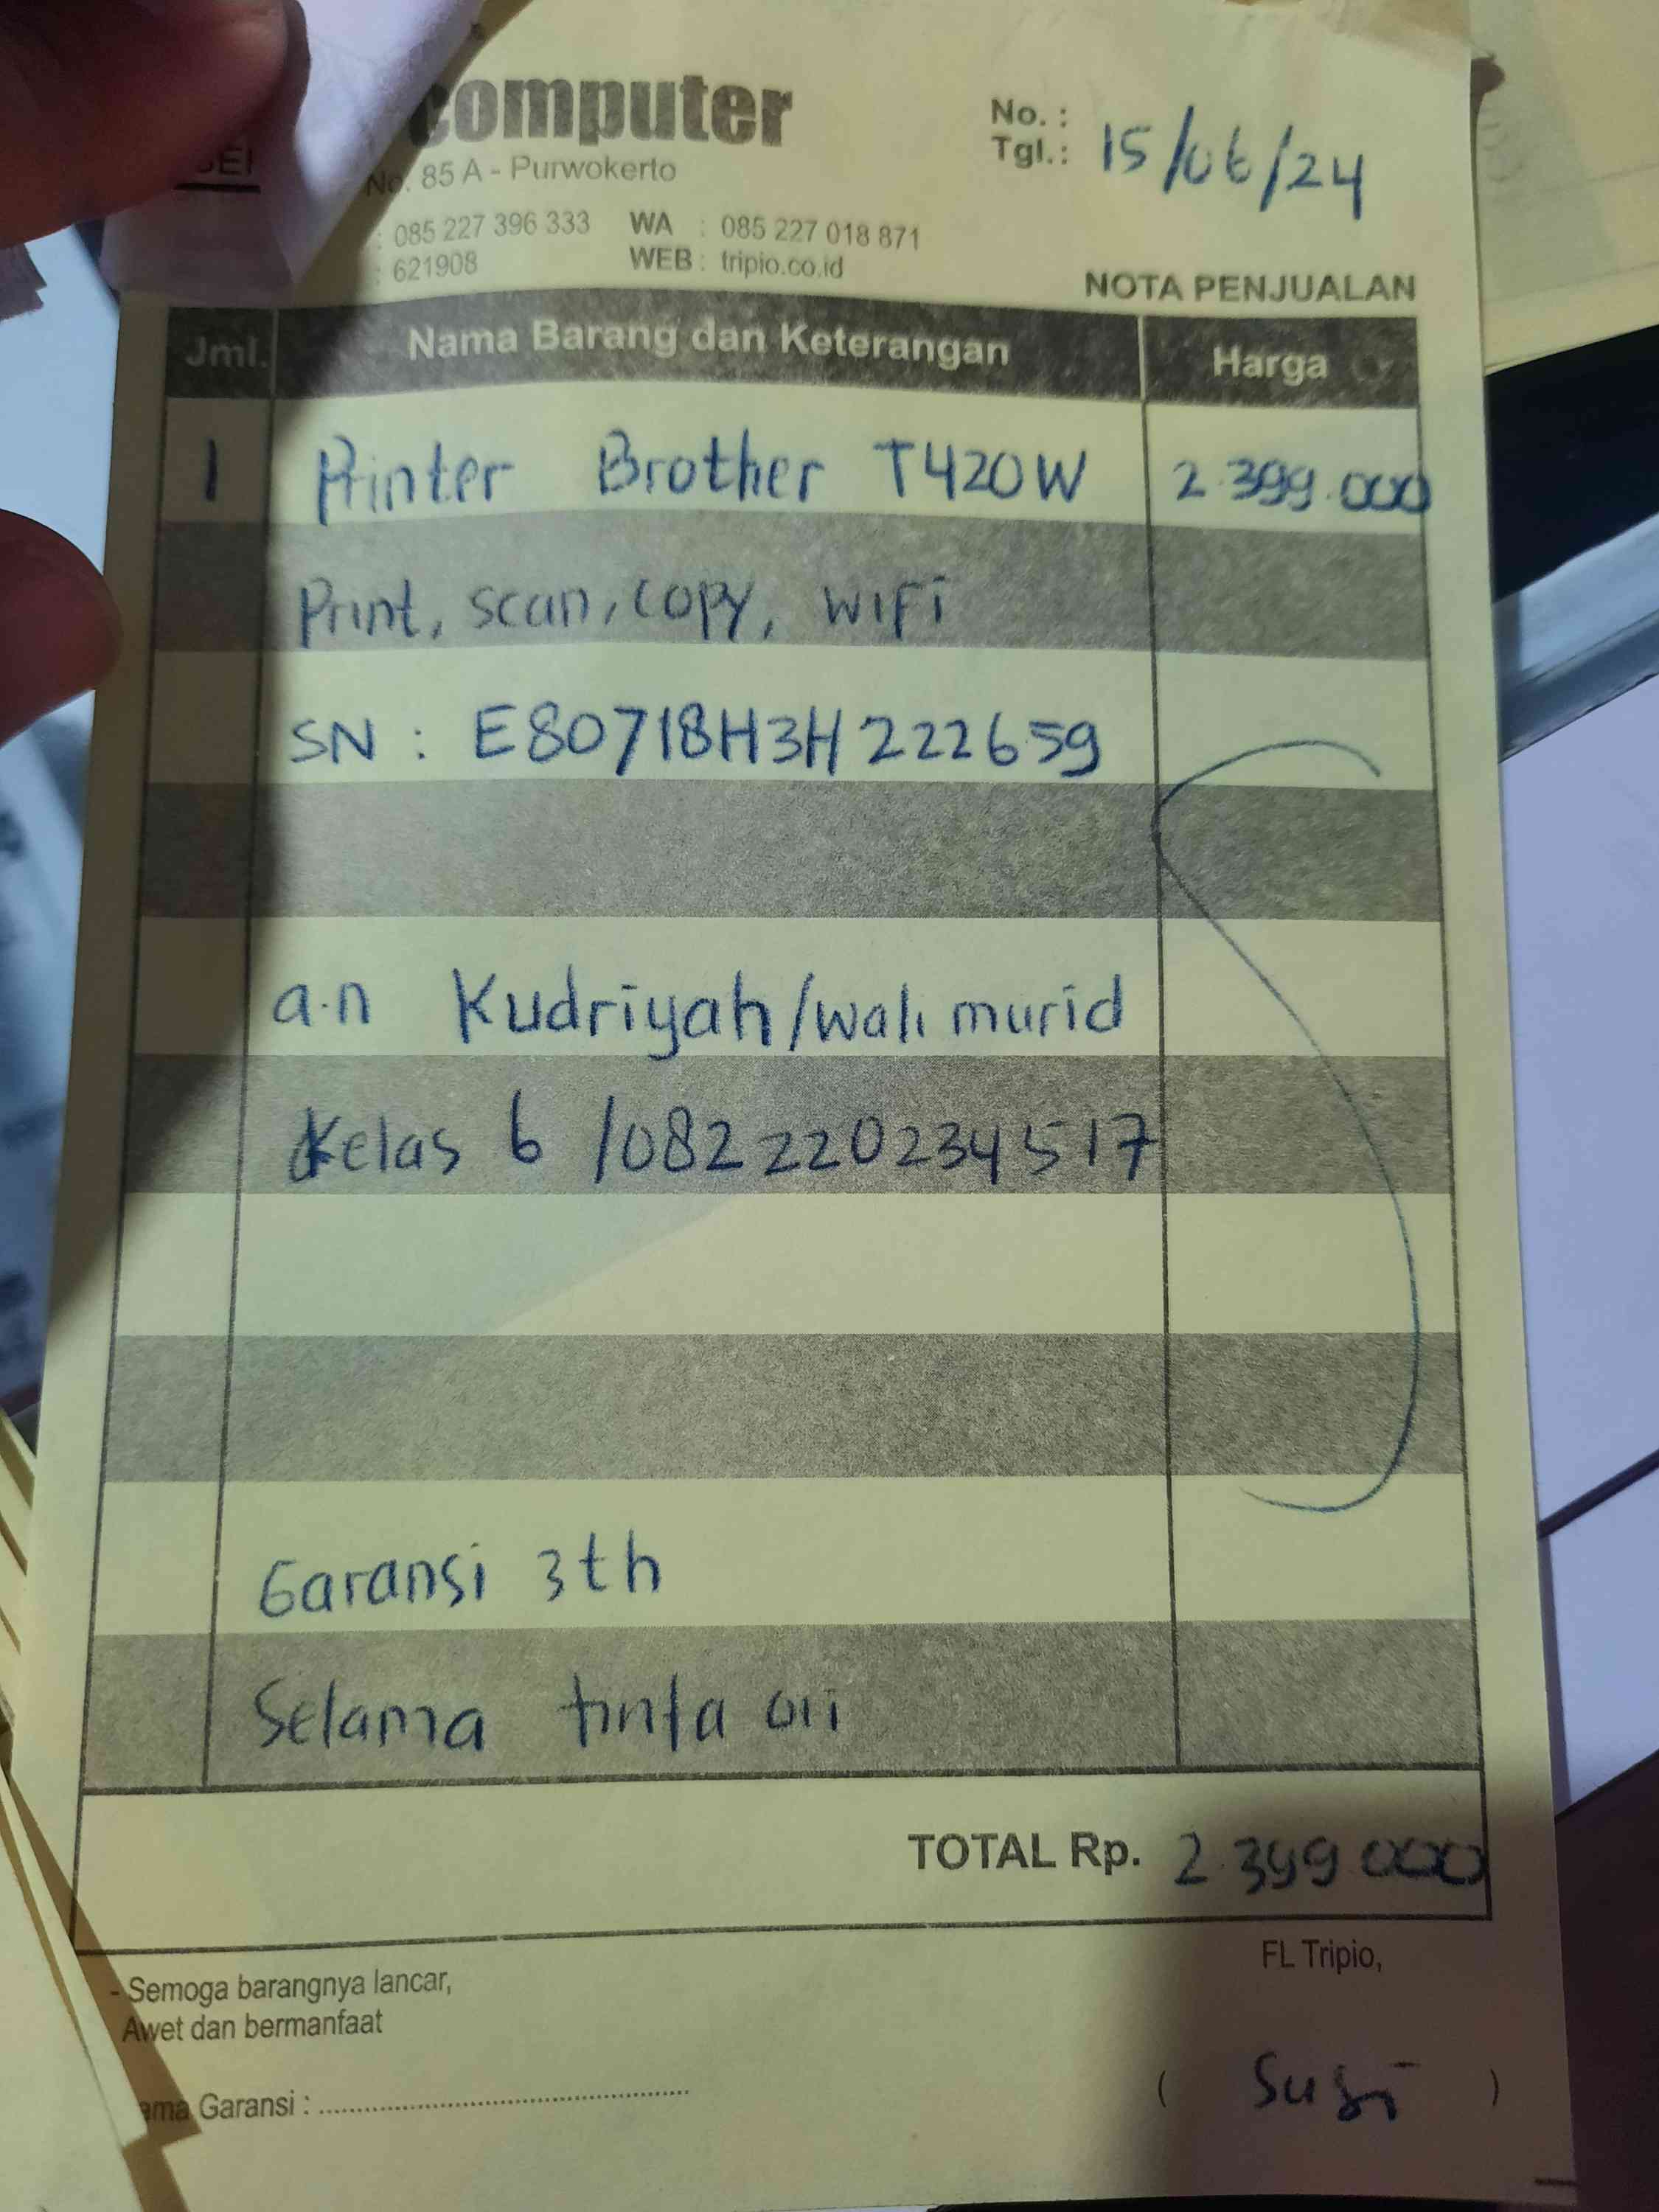 computer
No. 85 A - Purwokerto
: 085 227 396 333 WA : 085 227 018 871
: 621908 WEB : tripio.co.id
No. :
Tgl.: 15/06/24
NOTA PENJUALAN
Jml. Nama Barang dan Keterangan Harga
1 Printer Brother T420W 2.399.000
Print, scan, copy, wifi
SN : E80718H3H222659
a.n Kudriyah/wali murid
Kelas 6 /082220234517
Garansi 3th
Selama tinta ori
TOTAL Rp. 2.399.000
- Semoga barangnya lancar,
Awet dan bermanfaat
FL Tripio,
Garansi : ..........
( Susi )